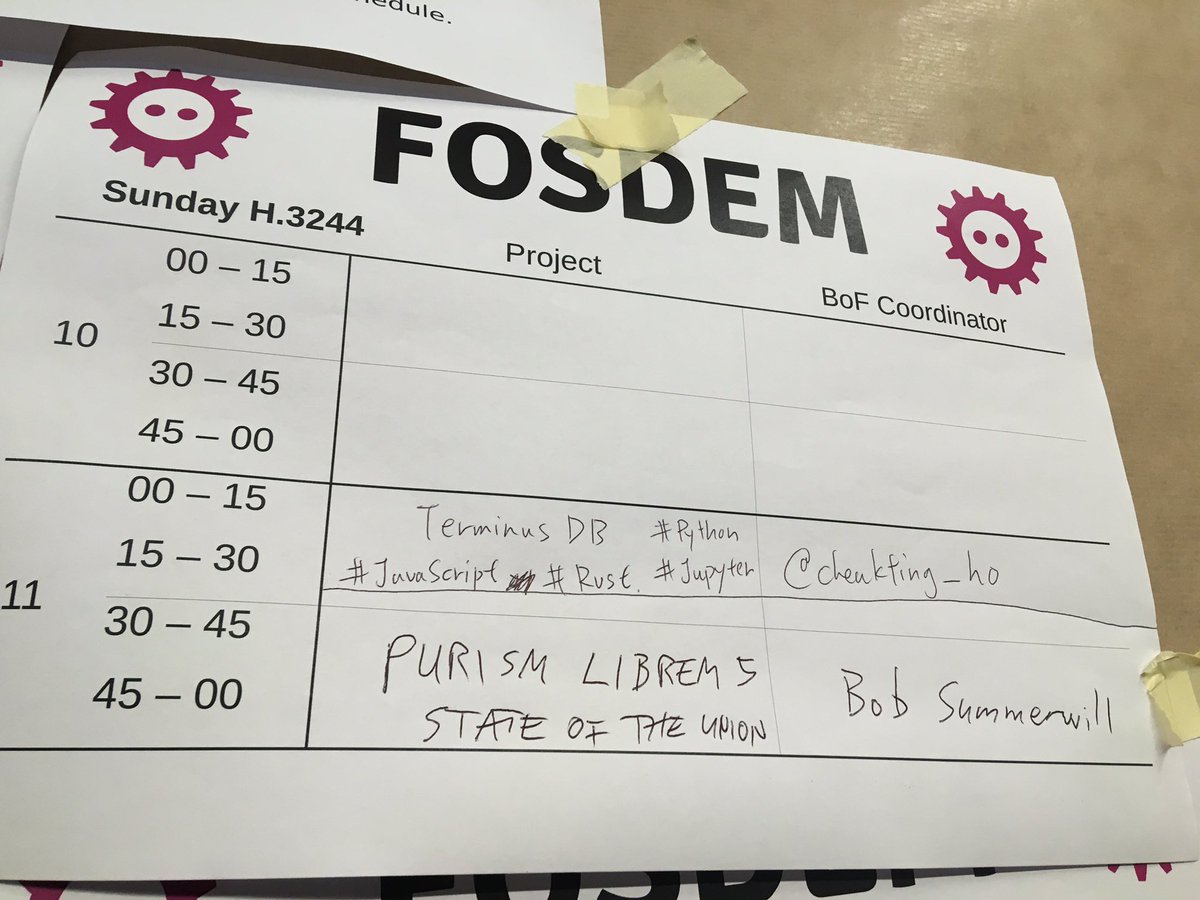 hedule.
FOSDEM
Sunday H.3244
Project
BoF Coordinator
10
00 – 15
15 – 30
30 – 45
45 – 00
11
00 – 15
15 – 30
30 – 45
45 – 00
Terminus DB #Python
#JavaScript # Rust. #Jupyter
@cheukting_ho
PURISM LIBREM 5
STATE OF THE UNION
Bob Summerwill
FOSDEM